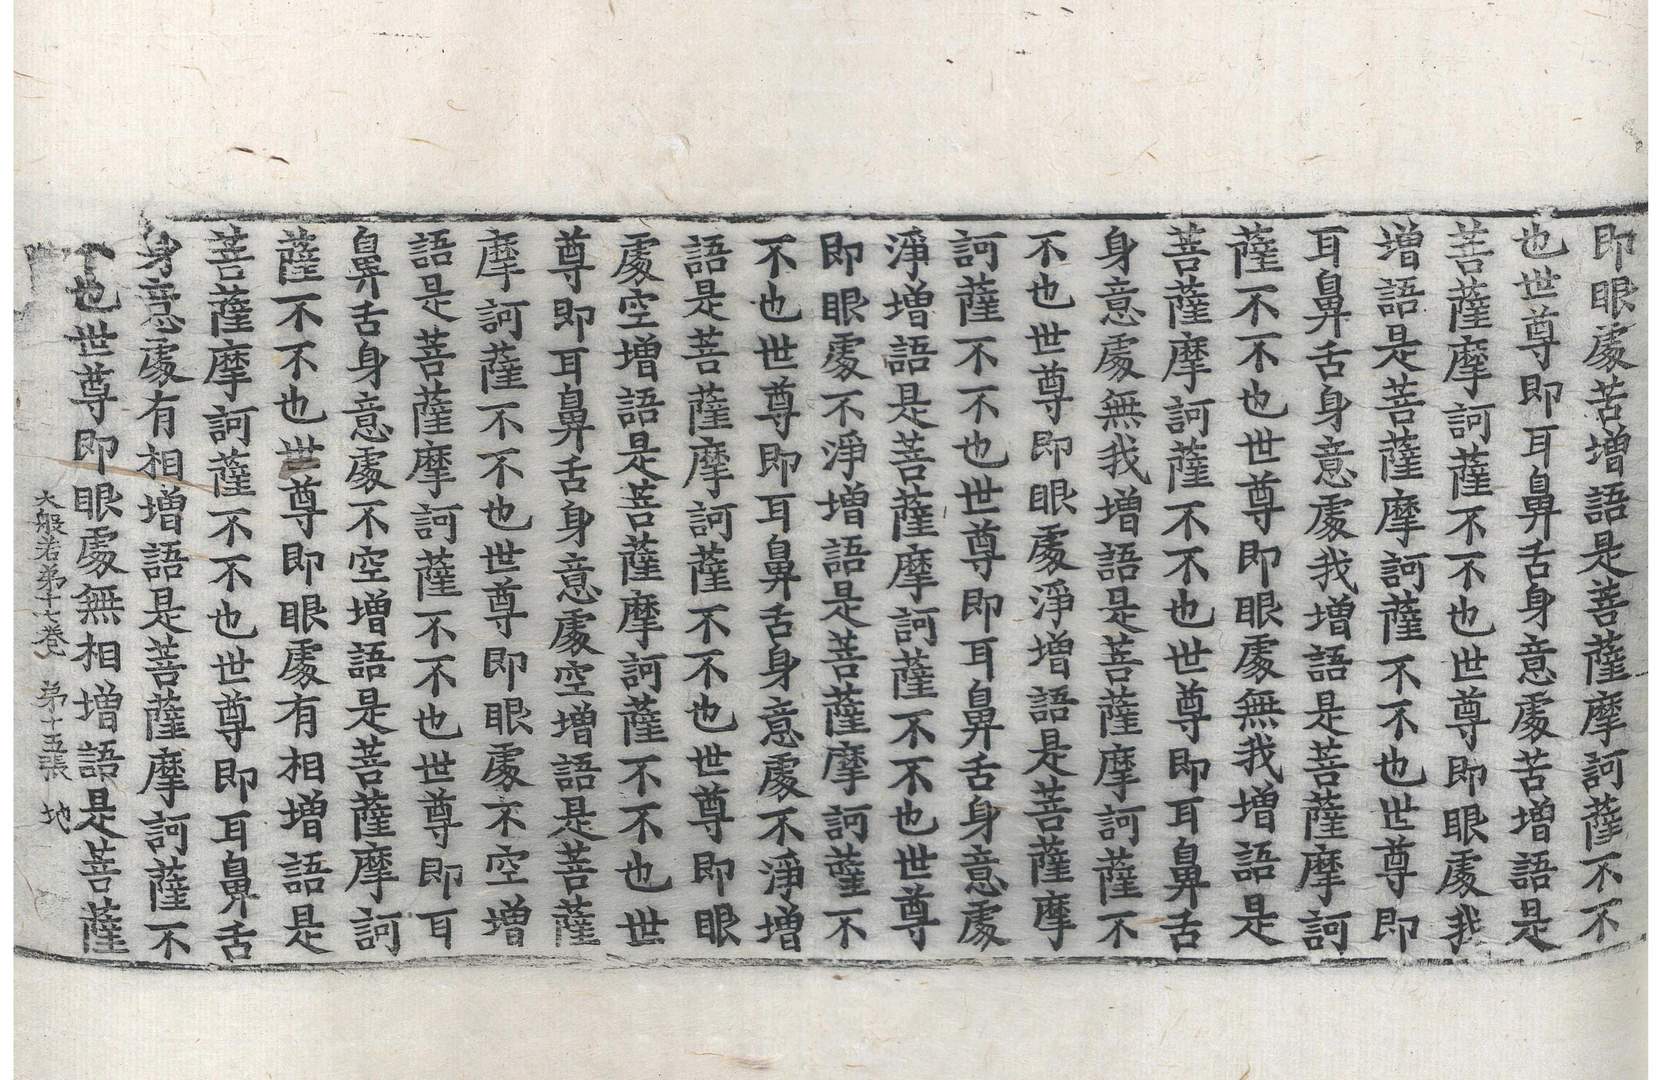 即眼處苦增語是菩薩摩訶薩不不
也世尊即耳鼻舌身意處苦增語是
菩薩摩訶薩不不也世尊即眼處我
增語是菩薩摩訶薩不不也世尊即
耳鼻舌身意處我增語是菩薩摩訶
薩不不也世尊即眼處無我增語是
菩薩摩訶薩不不也世尊即耳鼻舌
身意處無我增語是菩薩摩訶薩不
不也世尊即眼處淨增語是菩薩摩
訶薩不不也世尊即耳鼻舌身意處
淨增語是菩薩摩訶薩不不也世尊
即眼處不淨增語是菩薩摩訶薩不
不也世尊即耳鼻舌身意處不淨增
語是菩薩摩訶薩不不也世尊即眼
處空增語是菩薩摩訶薩不不也世
尊即耳鼻舌身意處空增語是菩薩
摩訶薩不不也世尊即眼處不空增
語是菩薩摩訶薩不不也世尊即耳
鼻舌身意處不空增語是菩薩摩訶
薩不不也世尊即眼處有相增語是
菩薩摩訶薩不不也世尊即耳鼻舌
身意處有相增語是菩薩摩訶薩不
不也世尊即眼處無相增語是菩薩
大般若第十七卷 第十五張 地